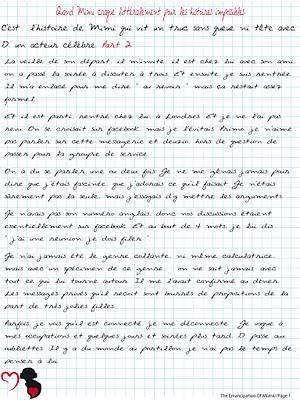 Quand Mimi craque littéralement pour les histoires impossibles
C'est l'histoire de Mimi qui vit un truc sans queue ni tête avec
D. un acteur célèbre Part 2
La veille de son départ, il m'invite, il est chez lui avec son ami.
on a passé la soirée à discuter à trois. Et ensuite, je suis rentrée.
Il m'a enlacé pour me dire "au revoir" mais ça restait assez
formel
Et il est parti, rentré chez lui, à Londres. Et je ne l'ai pas
revu. On se croisait sur facebook, mais je l'évitais. Primo, je n'aime
pas parler sur cette messagerie et deuzio, hors de question de
passer pour la groupie de service.
On a du se parler une ou deux fois. Je ne me gênais jamais pour
dire que j'étais fascinée, que j'adorais ce qu'il faisait. Je n'étais
sûrement pas la seule, mais j'essayais d'y mettre les arguments.
Je n'avais pas son numéro anglais, donc nos discussions étaient
essentiellement sur facebook. Et au bout de 4 mots, je lui dis
"j'ai une réunion, je dois filer".
Je n'ai jamais été le genre collante, ni même calculatrice,
mais avec un spécimen de ce genre, on ne sait jamais avec
tout ce qui lui tourne autour. Il me l'avait confirmé au dîner.
Les messages privés qu'il reçoit sont bourrés de propositions de la
part de très jolies filles.
Parfois, je vois qu'il est connecté, je me déconnecte. Je vaque à
mes occupations et quelques jours et soirées plus tard, D. passe aux
oubliettes. Il y a du monde au portillon, je n'ai pas le temps de
penser à lui.
The Emancipation Of Mimi | Page 1